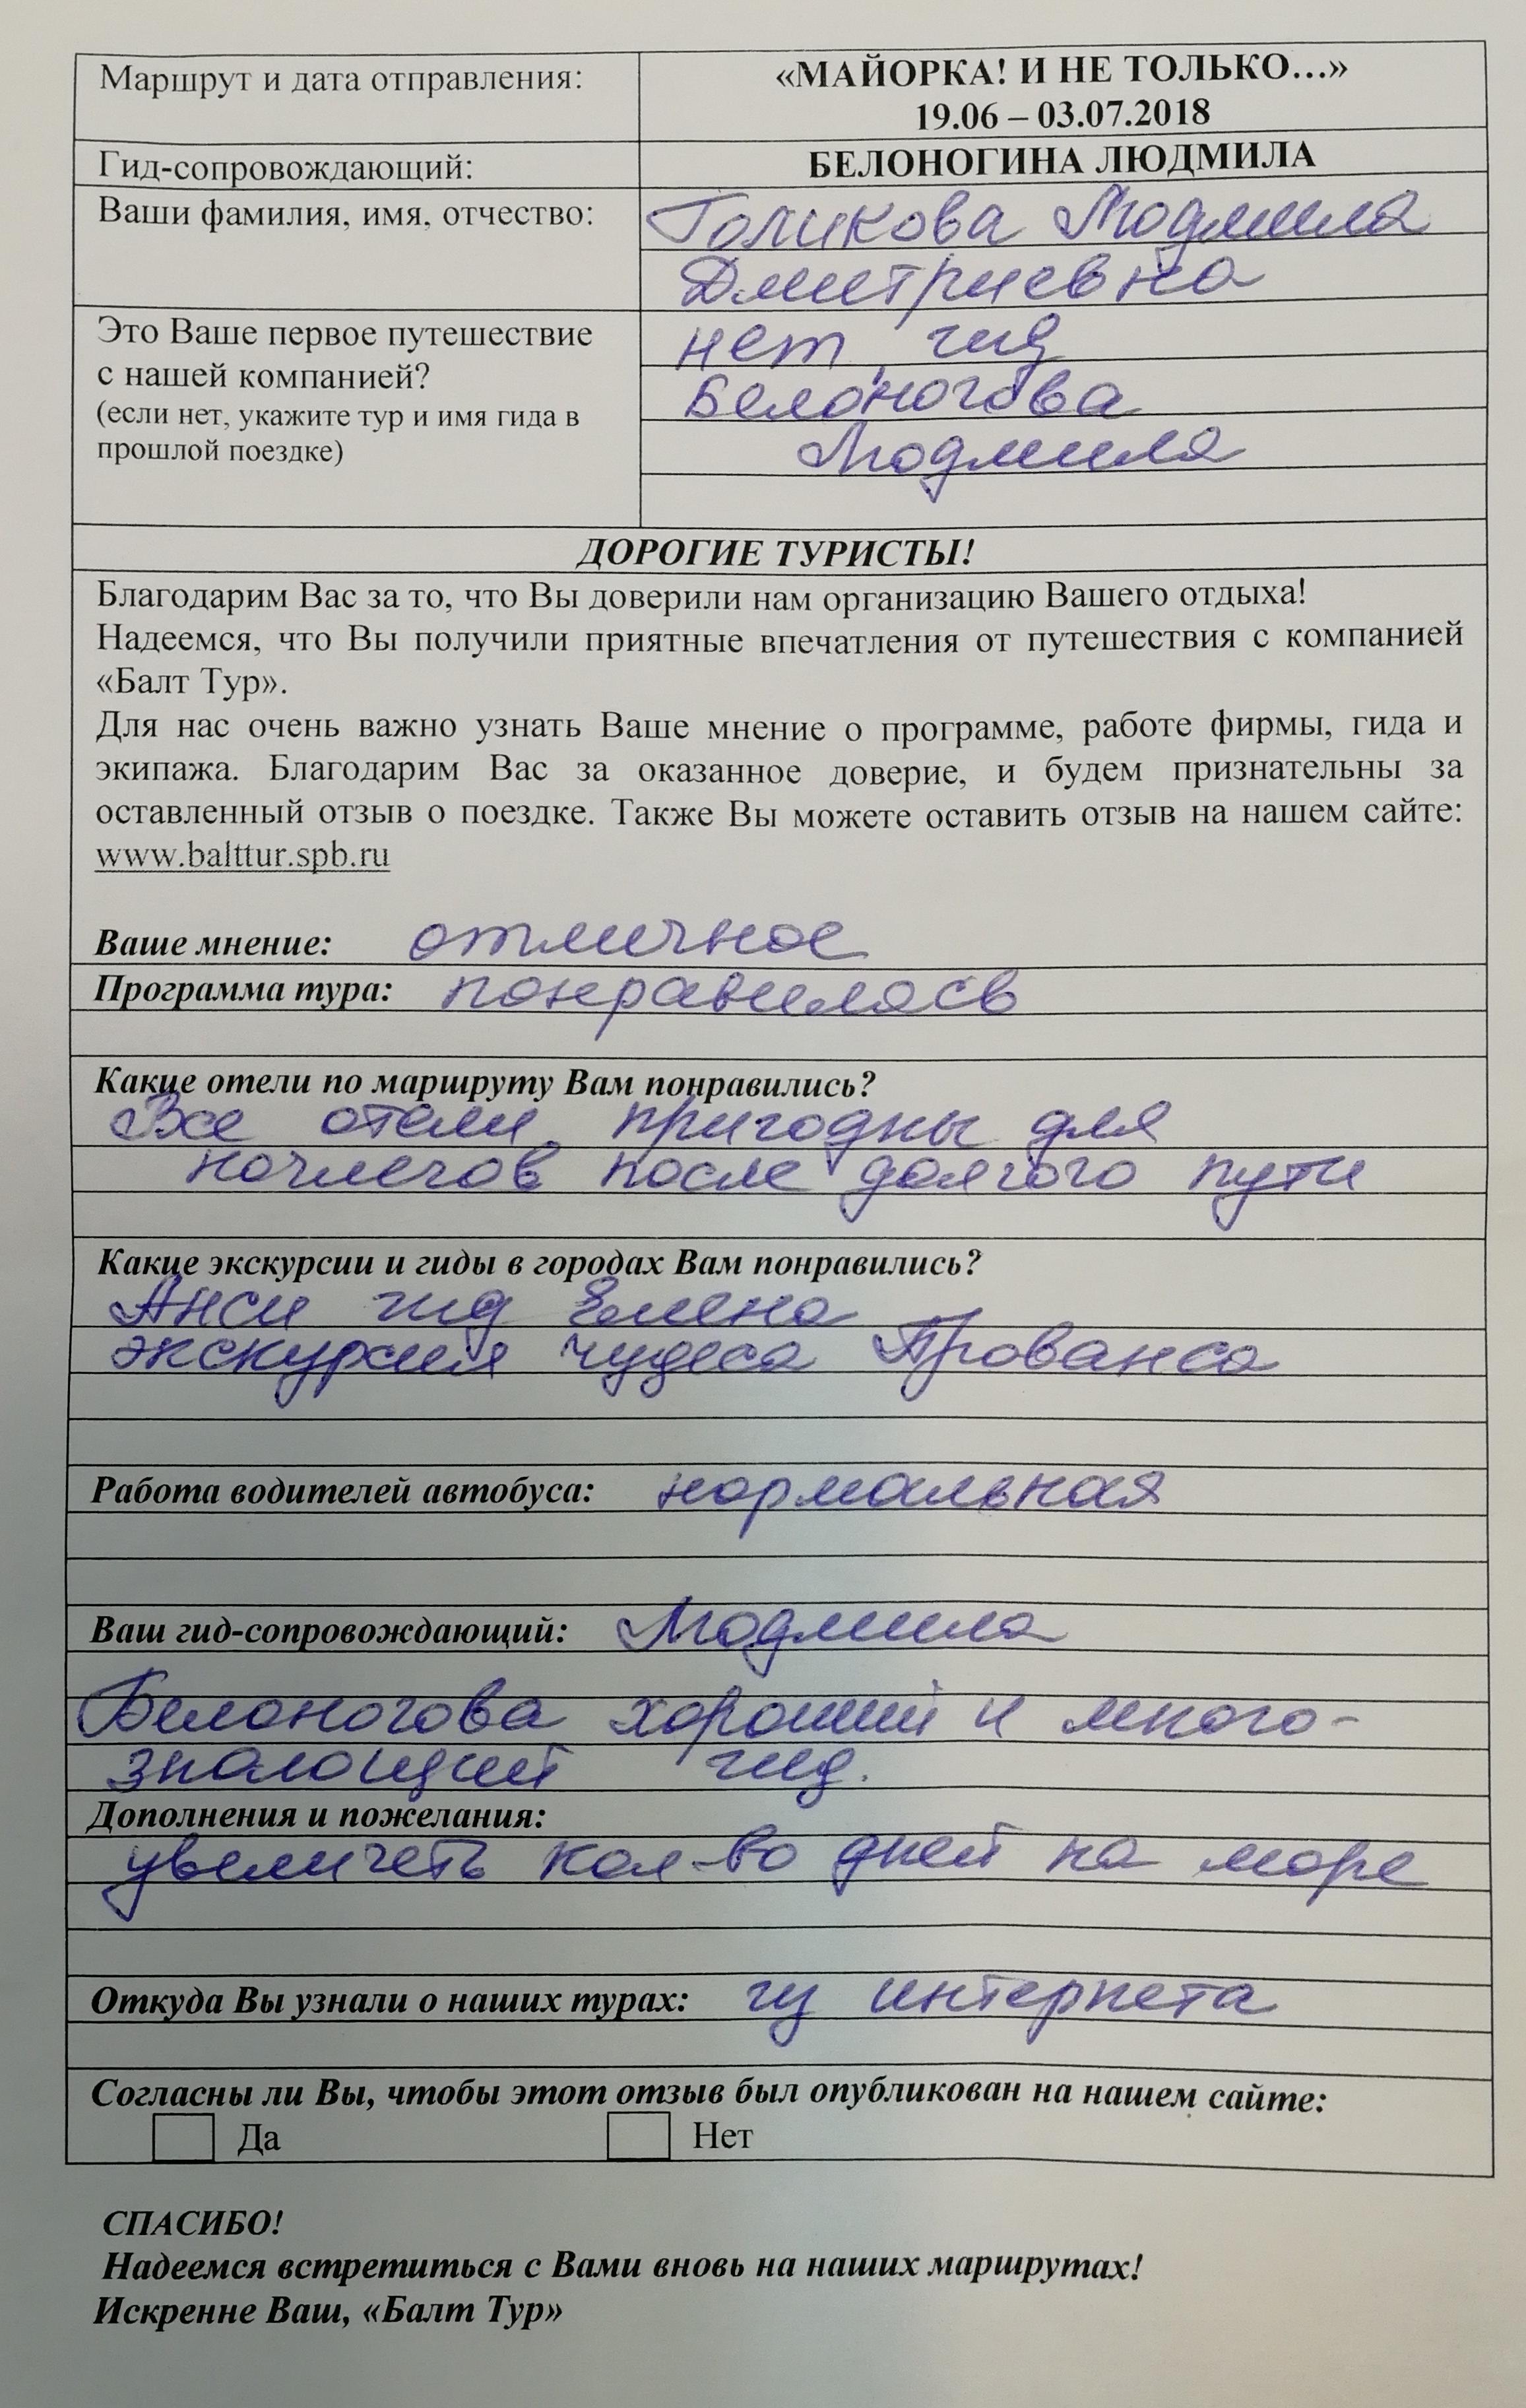 Маршрут и дата отправления:
«МАЙОРКА! И НЕ ТОЛЬКО…»
19.06 – 03.07.2018
Гид-сопровождающий:
БЕЛОНОГИНА ЛЮДМИЛА
Ваши фамилия, имя, отчество:
Голикова Людмила
Дмитриевна
Это Ваше первое путешествие
с нашей компанией?
(если нет, укажите тур и имя гида в
прошлой поездке)
нет, гид
Белоногова
Людмила
ДОРОГИЕ ТУРИСТЫ!
Благодарим Вас за то, что Вы доверили нам организацию Вашего отдыха!
Надеемся, что Вы получили приятные впечатления от путешествия с компанией
«Балт Тур».
Для нас очень важно узнать Ваше мнение о программе, работе фирмы, гида и
экипажа. Благодарим Вас за оказанное доверие, и будем признательны за
оставленный отзыв о поездке. Также Вы можете оставить отзыв на нашем сайте:
www.balttur.spb.ru
Ваше мнение: отличное
Программа тура: понравилась
Какие отели по маршруту Вам понравились?
Все отели пригодны для
ночлегов после долгого пути
Какие экскурсии и гиды в городах Вам понравились?
Анси гид Елена
экскурсия чудеса Прованса
Работа водителей автобуса: нормальная
Ваш гид-сопровождающий: Людмила
Белоногова хороший и много-
знающий гид.
Дополнения и пожелания:
увеличеть кол-во дней на море
Откуда Вы узнали о наших турах: из интернета
Согласны ли Вы, чтобы этот отзыв был опубликован на нашем сайте:
Да Нет
СПАСИБО!
Надеемся встретиться с Вами вновь на наших маршрутах!
Искренне Ваш, «Балт Тур»